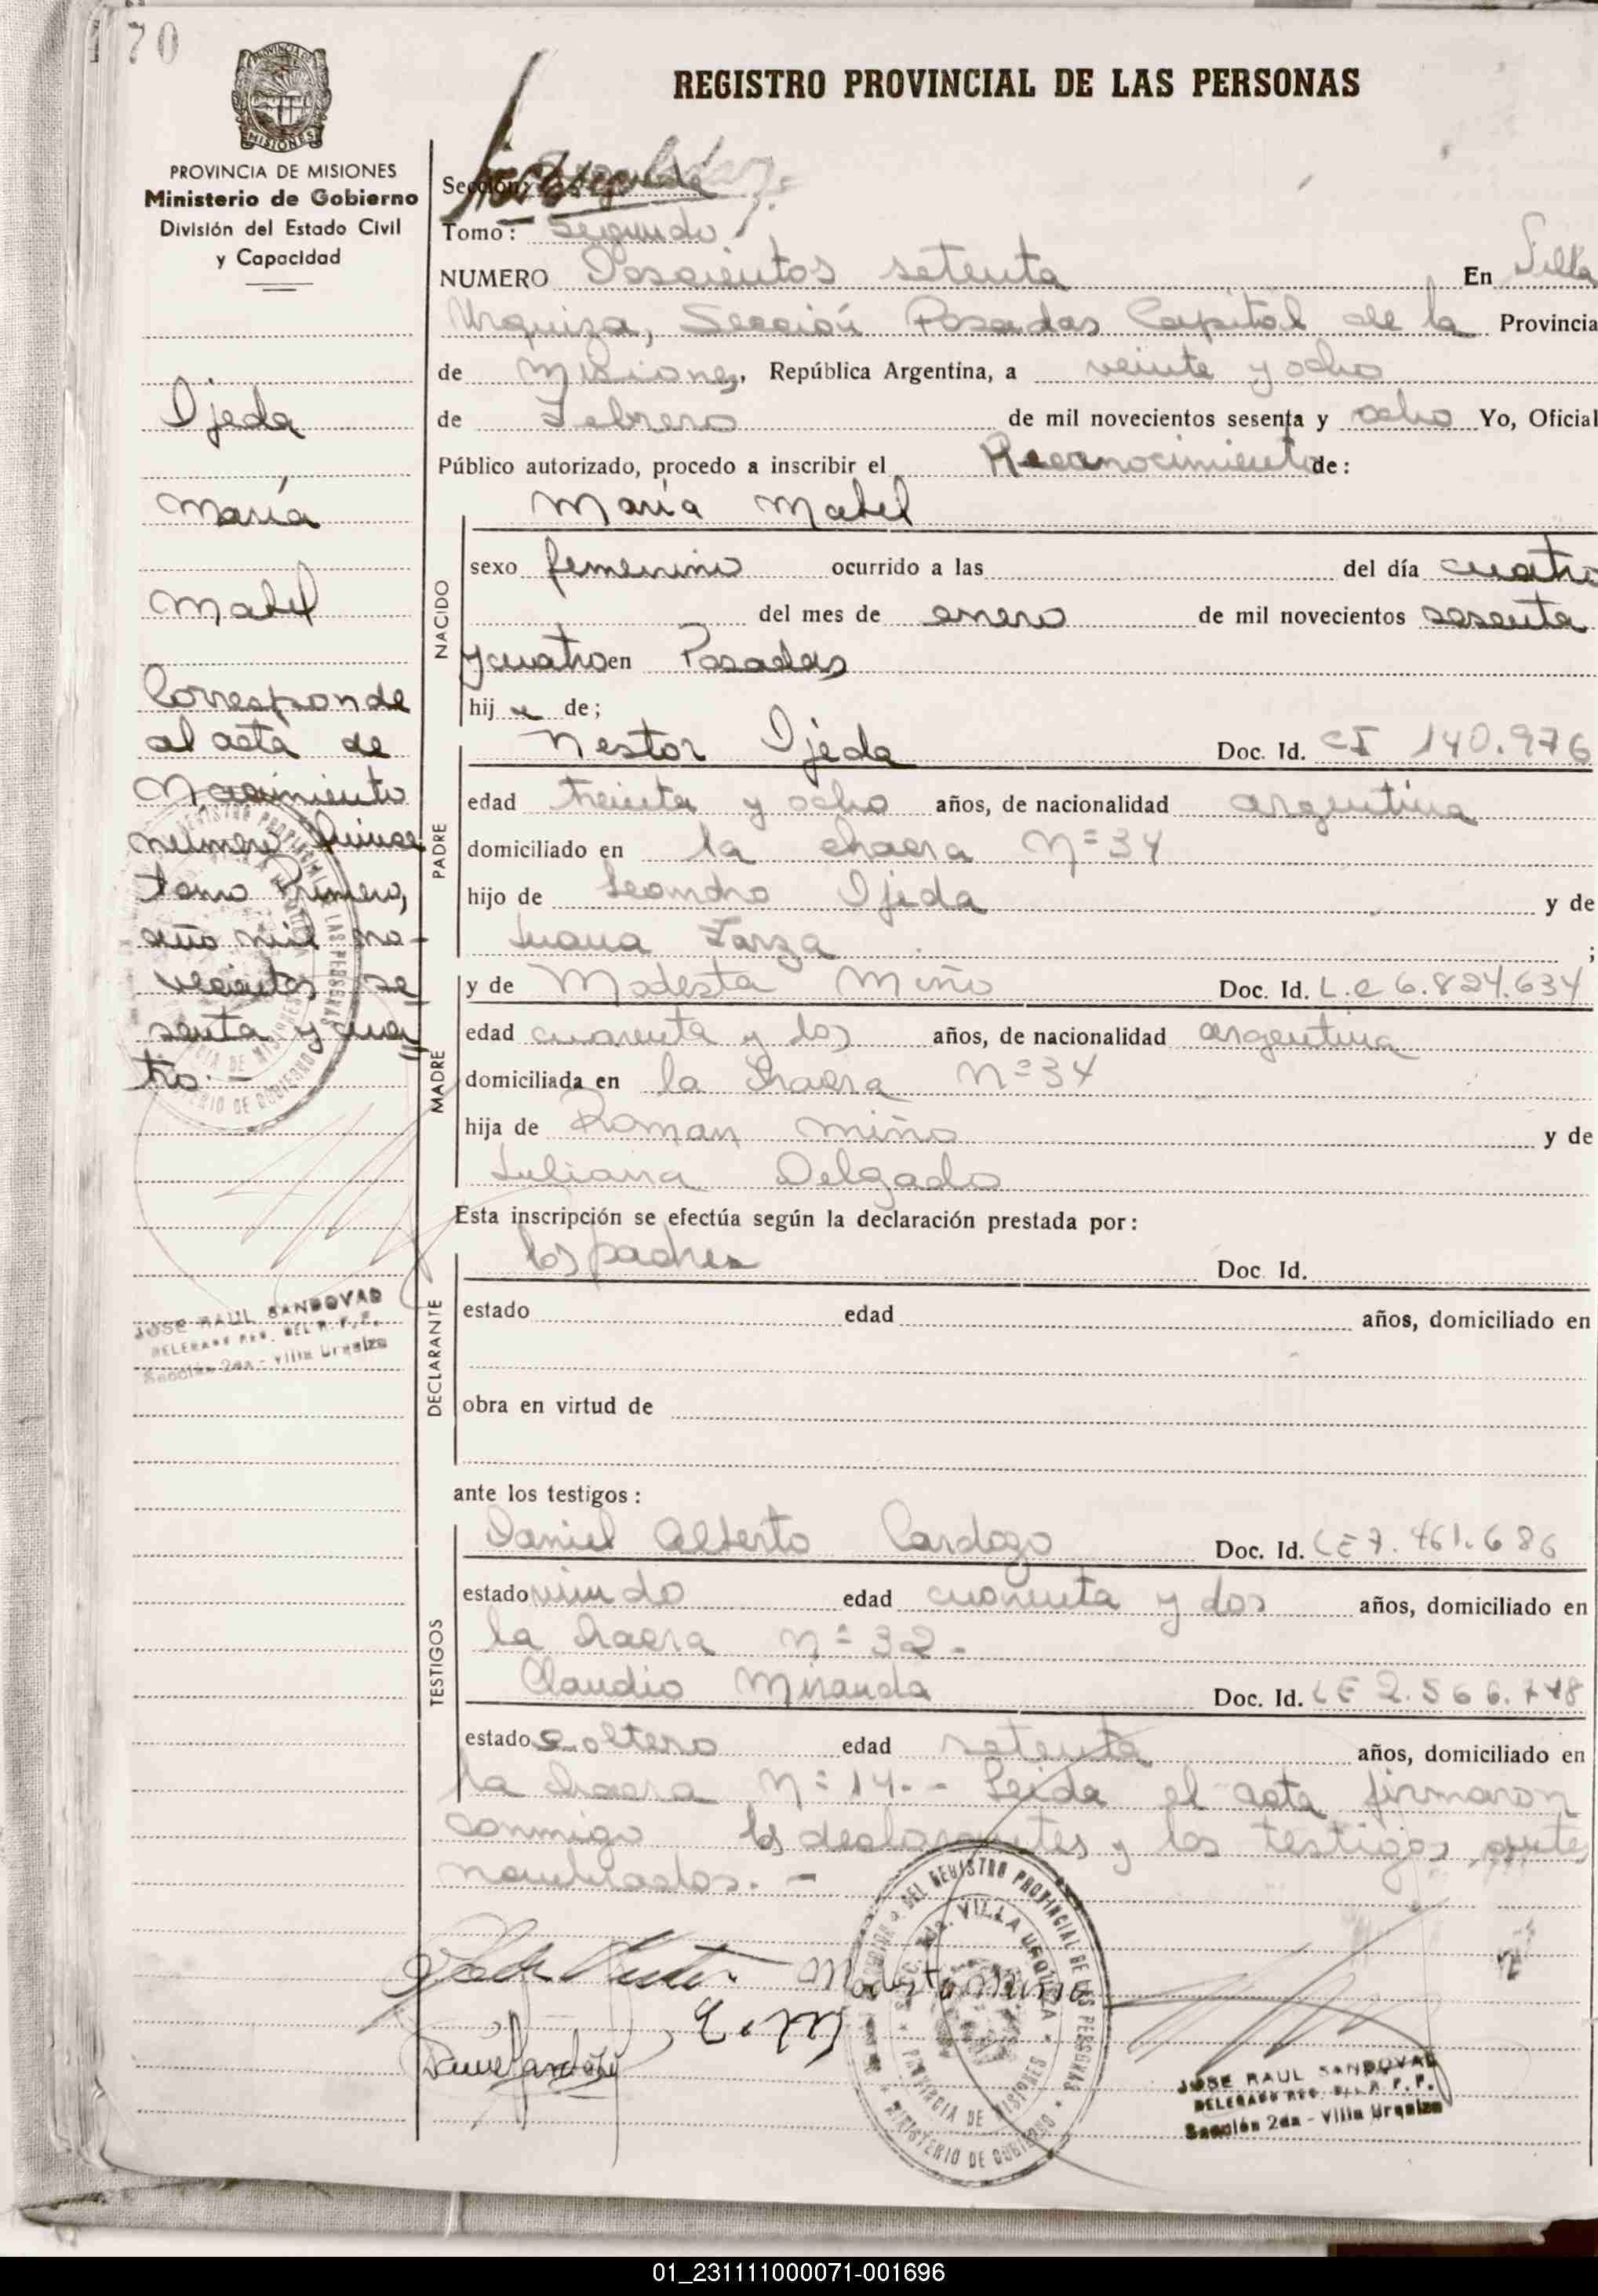 70
REGISTRO PROVINCIAL DE LAS PERSONAS
PROVINCIA DE MISIONES
Ministerio de Gobierno
División del Estado Civil
y Capacidad
Ojeda
María
Mabel
Corresponde
al acta de
Nacimiento
número quince
tomo Primero,
año mil no-
vecientos se
senta y cua
tro. -
JOSE RAUL SANDOVAL
Sección 2da - Villa Urquiza
Sección:
Tomo: Segundo
NUMERO Doscientos setenta En Villa
Urquiza, Sección Posadas Capital de la Provincia
de Misiones, República Argentina, a veinte y ocho
de Febrero de mil novecientos sesenta y ocho Yo, Oficial
Público autorizado, procedo a inscribir el Reconocimiento de:
NACIDO
María Mabel
sexo femenino ocurrido a las del día cuatro
del mes de enero de mil novecientos sesenta
y cuatro en Posadas
hij a de;
PADRE
Nestor Ojeda Doc. Id. CI 140.976
edad treinta y ocho años, de nacionalidad argentina
domiciliado en la chacra Nº 34
hijo de Leandro Ojeda y de
Juana Zarza ;
MADRE
y de Modesta Miño Doc. Id. L.C 6.824.634
edad cuarenta y dos años, de nacionalidad argentina
domiciliada en la chacra Nº 34
hija de Roman Miño y de
Juliana Delgado
Esta inscripción se efectúa según la declaración prestada por:
DECLARANTE
los padres Doc. Id.
estado edad años, domiciliado en
obra en virtud de
ante los testigos:
TESTIGOS
Daniel Alberto Cardozo Doc. Id. LE 7.461.686
estado viudo edad cuarenta y dos años, domiciliado en
la chacra Nº 32-
Claudio Miranda Doc. Id. LE 2.566.748
estado soltero edad setenta años, domiciliado en
la chacra Nº 14.- Leida el acta firmaron
conmigo los declarantes y los testigos antes
nombrados. -
Modesta Miño
DEL REGISTRO PROVINCIAL DE LAS PERSONAS
VILLA URQUIZA
PROVINCIA DE MISIONES
MINISTERIO DE GOBIERNO
JOSE RAUL SANDOVAL
Sección 2da - Villa Urquiza
01_231111000071-001696